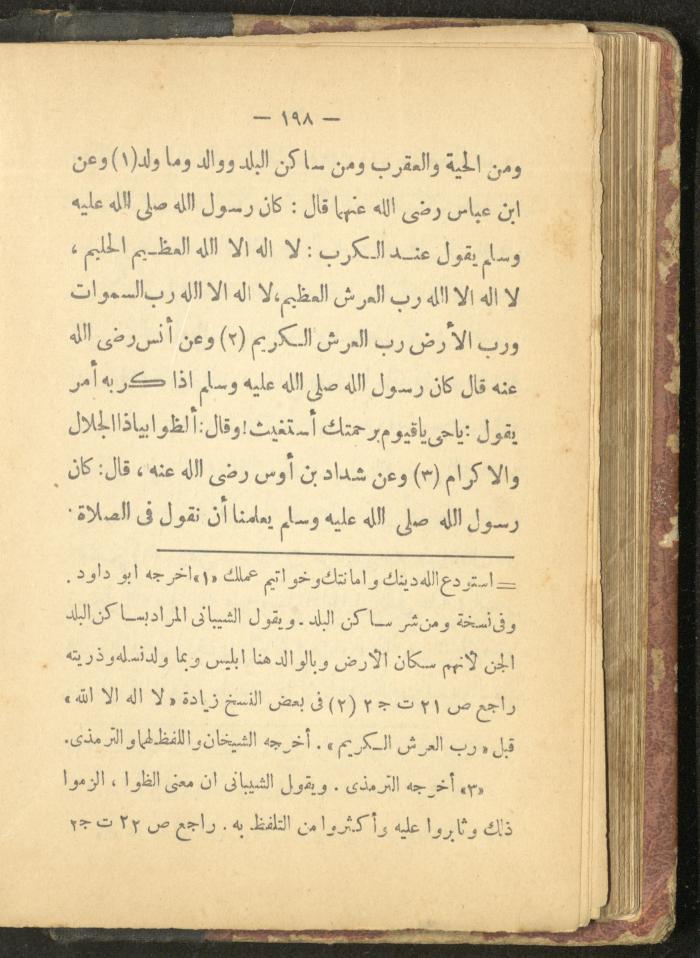 — ١٩٨ —
ومن الحية والعقرب ومن ساكن البلد ووالد وما ولد(١) وعن
ابن عباس رضى الله عنهما قال : كان رسول الله صلى الله عليه
وسلم يقول عند الكرب : لا اله الا الله العظيم الحليم ،
لا اله الا الله رب العرش العظيم،لا اله الا الله رب السموات
ورب الأرض رب العرش الكريم (٢) وعن أنس رضى الله
عنه قال كان رسول الله صلى الله عليه وسلم اذا كربه أمر
يقول :ياحى ياقيوم برحمتك أستغيث!وقال:ألظوا بياذا الجلال
والاكرام (٣) وعن شداد بن أوس رضى الله عنه ، قال: كان
رسول الله صلى الله عليه وسلم يعلمنا أن نقول فى الصلاة .
= استودع الله دينك وامانتك وخواتيم عملك «١» اخرجه ابو داود .
وفى نسخة ومن شر ساكن البلد . ويقول الشيبانى المراد بساكن البلد
الجن لأنهم سكان الأرض وبالوالد هنا ابليس وبما ولد نسله وذريته
راجع ص ٢١ ت ج ٢ (٢) فى بعض النسخ زيادة « لا اله الا الله »
قبل « رب العرش الكريم » . أخرجه الشيخان واللفظ لهما والترمذى.
«٣» أخرجه الترمذى . ويقول الشيبانى ان معنى الظوا ، الزموا
ذلك وثابروا عليه وأكثروا من التلفظ به . راجع ص ٢٢ ت ج٢